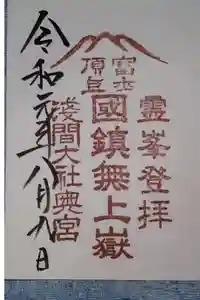 霊峯登拝
富士
頂上
國鎮無上嶽
浅間大社奥宮
令和元年八月九日